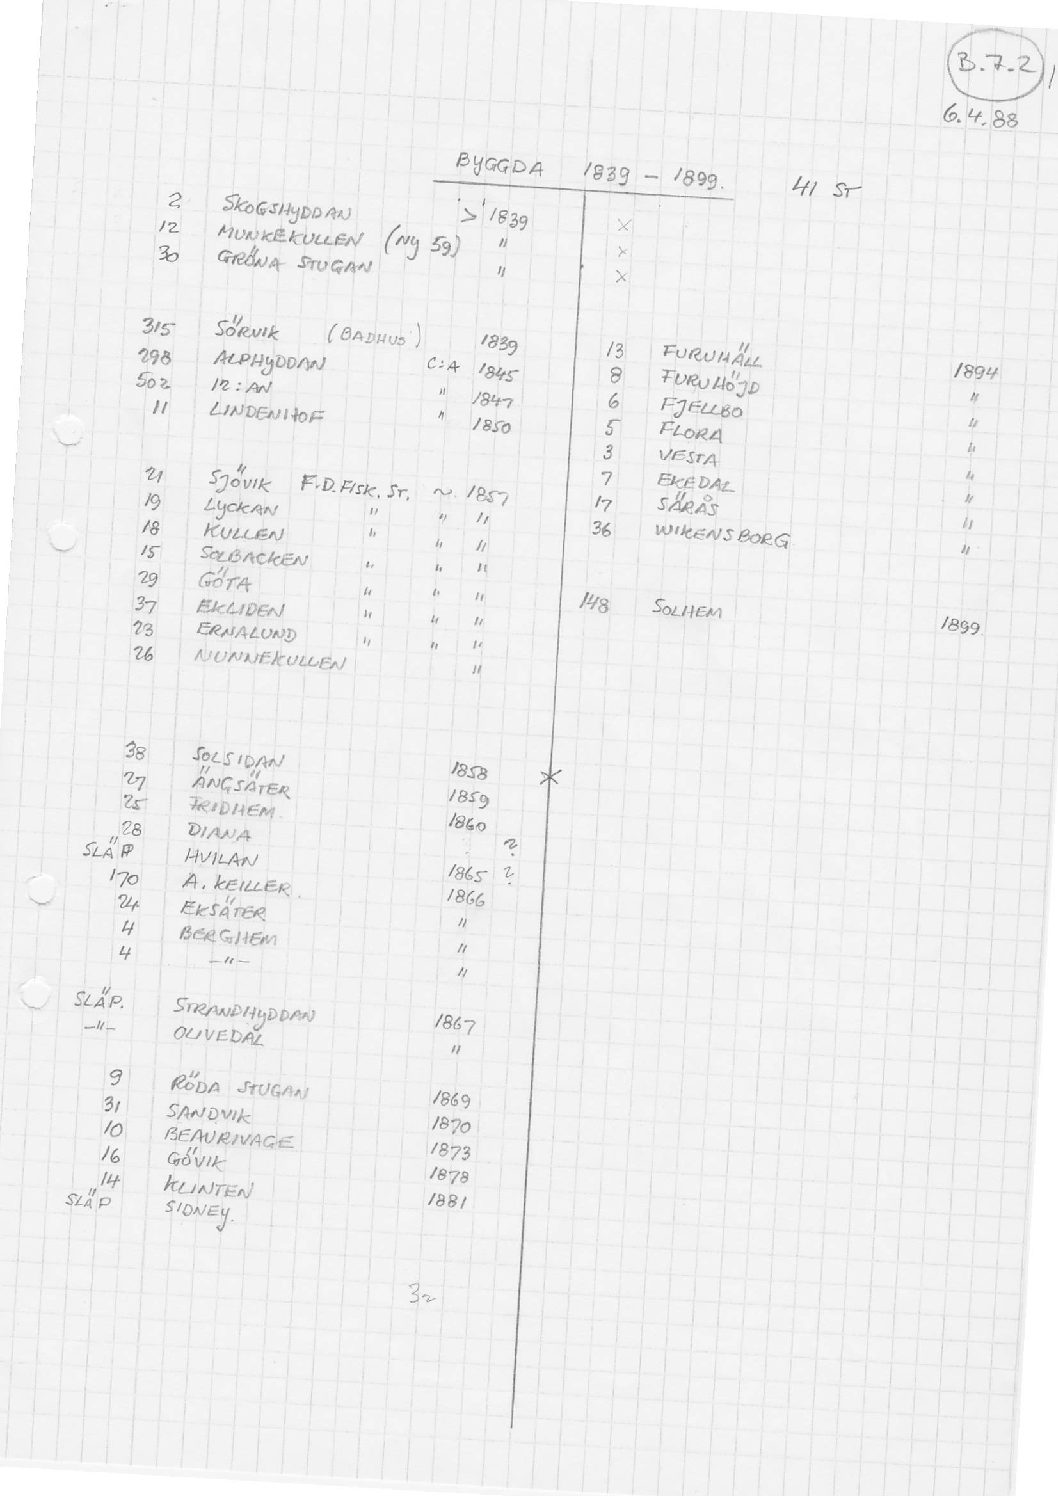 B.7.2 1
6.4.88
BYGGDA 1839 – 1899. 41 ST
2 SKOGSHYDDAN '>' 1839 ×
12 MUNKEKULLEN (NY 59) " ×
30 GRÖNA STUGAN " ×
315 SÖRVIK (BADHUS) 1839
298 ALPHYDDAN C:A 1845
502 12:AN " 1847
11 LINDENHOF " 1850
21 SJÖVIK F.D.FISK.ST. ~ 1857
19 LYCKAN " " "
18 KULLEN " " "
15 SOLBACKEN " " "
29 GÖTA " " "
37 EKLIDEN " " "
23 ERNALUND " " "
26 NUNNEKULLEN "
38 SOLSIDAN 1858 ×
27 ÄNGSÄTER 1859
25 FRIDHEM 1860
28 DIANA ?
SLÄP HVILAN 1865 ?
170 A. KEILLER. 1866
24 EKSÄTER "
4 BERGHEM "
4 –"– "
SLÄP. STRANDHYDDAN 1867
–"– OLIVEDAL "
9 RÖDA STUGAN 1869
31 SANDVIK 1870
10 BEAURIVAGE 1873
16 GÖVIK 1878
14 KLINTEN 1881
SLÄP SIDNEY.
32
13 FURUHÄLL 1894
8 FURUHÖJD "
6 FJELLBO "
5 FLORA "
3 VESTA "
7 EKEDAL "
17 SÄRÅS "
36 WIKENSBORG "
148 SOLHEM 1899